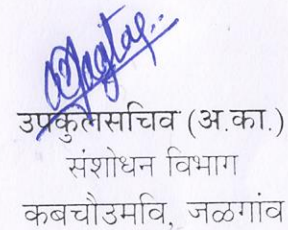 उपकुलसचिव (अ.का.)
संशोधन विभाग
कबचौउमवि, जळगांव